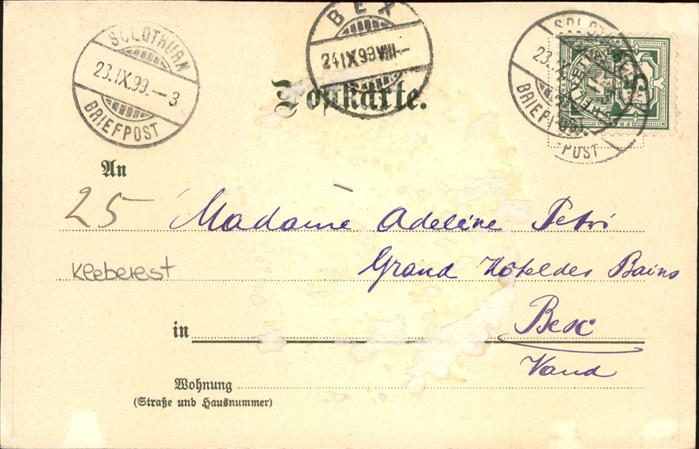 SOLOTHURN
23.IX.99.–3
BRIEFPOST
BEX
24.IX.99.VIII–
SOLOTHURN
23.IX.99.
BRIEFPOST
HELVETIA
Postkarte.
An
25
Madame Adeline Petri
Kleberest
Grand Hôtel des Bains
in
Bex
Vaud
Wohnung
(Straße und Hausnummer)